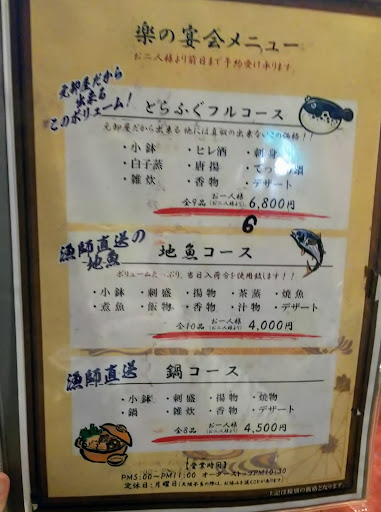 楽の宴会メニュー
お二人様より前日まで予約受け承ります。
元卸屋だから
出来る
このボリューム!
とらふぐフルコース
元卸屋だから出来る他には真似の出来ないこの価格!!
・小鉢 ・ヒレ酒 ・刺身
・白子蒸 ・唐揚 ・てっちり鍋
・雑炊 ・香物 ・デザート
全9品 お一人様(お二人様より) 6,800円
6
漁師直送の
地魚
地魚コース
ボリュームたっぷり、当日入荷分を使用致します!!
・小鉢 ・刺盛 ・揚物 ・茶蒸 ・焼魚
・煮魚 ・飯物 ・香物 ・汁物 ・デザート
全10品 お一人様(お二人様より) 4,000円
漁師直送
鍋コース
・小鉢 ・刺盛 ・揚物 ・焼物
・鍋 ・雑炊 ・香物 ・デザート
全8品 お一人様(お二人様より) 4,500円
【営業時間】
PM5:00〜PM11:00 オーダーストップPM10:30
定休日:月曜日
上記は税別の価格となります。